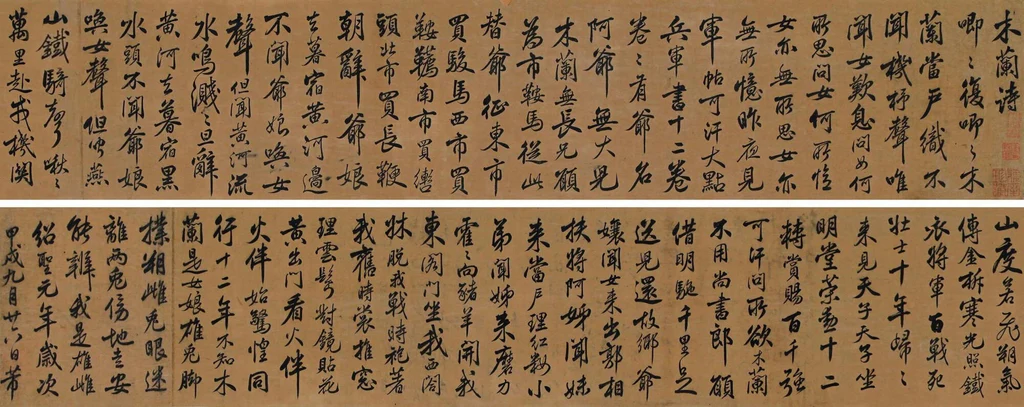 木蘭詩
唧々復唧々木
蘭當戶織不
聞機杼聲唯
聞女歎息問女何
所思問女何所憶
女亦無所思女亦
無所憶昨夜見
軍帖可汗大點
兵軍書十二卷
卷々有爺名
阿爺無大兒
木蘭無長兄願
為市鞍馬從此
替爺征東市
買駿馬西市買
鞍韉南市買轡
頭北市買長鞭
朝辭爺娘
去暮宿黃河邊
不聞爺娘喚女
聲但聞黃河流
水鳴濺々旦辭
黃河去暮宿黑
水頭不聞爺娘
喚女聲但聞燕
山鐵騎聲啾々
萬里赴戎機関
山度若飛朔氣
傳金柝寒光照鐵
衣將軍百戰死
壯士十年歸々
來見天子天子坐
明堂策勳十二
轉賞賜百千強
可汗問所欲木蘭
不用尚書郎願
借明駝千里足
送兒還故鄉爺
孃聞女來出郭相
扶將阿姊聞妹
来當戶理紅妝小
弟聞姊来磨刀
霍々向豬羊開我
東閣門坐我西閣
牀脫我戰時袍著
我舊時裳推窓
理雲鬢對鏡貼花
黃出門看火伴
火伴始驚惶同
行十二年不知木
蘭是女娘雄兔脚
撲朔雌兔眼迷
離兩兔傍地走安
能辨我是雄雌
紹聖元年歲次
甲戌九月廿六日芾